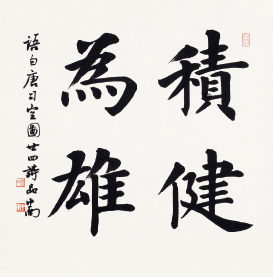 積健
為雄
語自唐司空圖廿四詩品